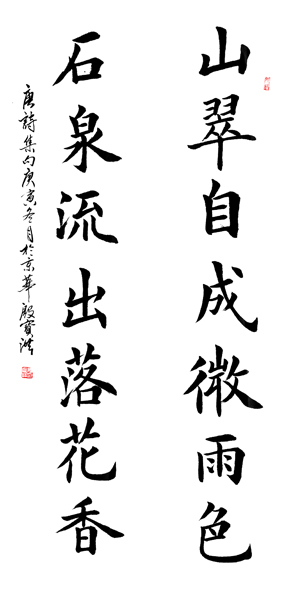 山翠自成微雨色
石泉流出落花香
唐詩集句庚寅冬月於京華殷寶洪